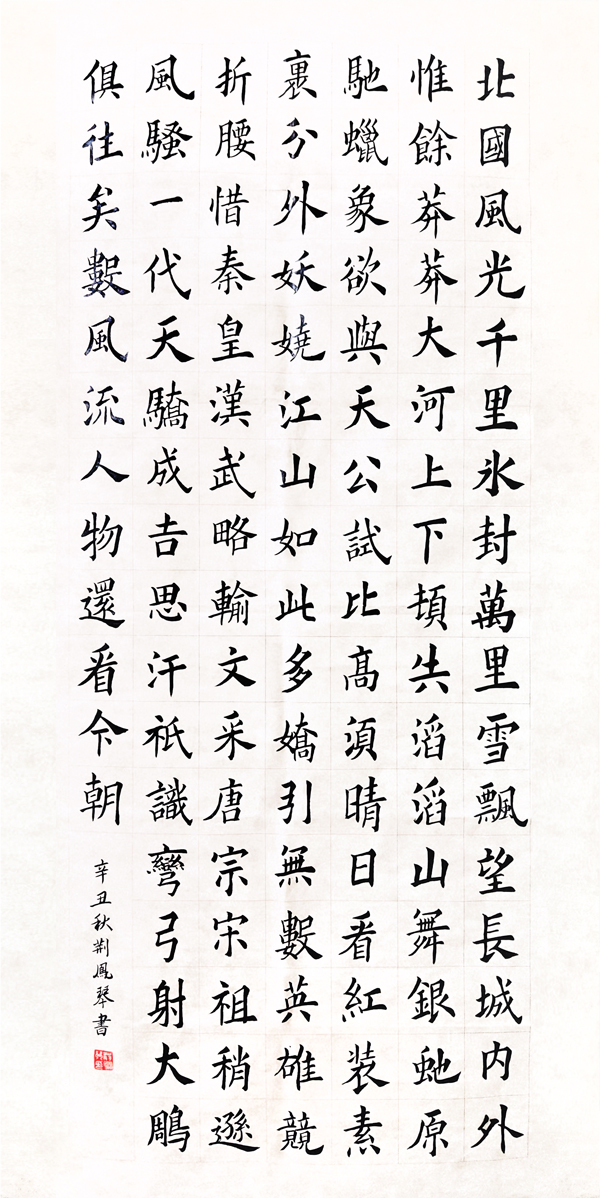 北國風光千里氷封萬里雪飄望長城内外
惟餘莽莽大河上下頓失滔滔山舞銀虵原
馳蠟象欲與天公試比高須晴日看紅装素
裹分外妖嬈江山如此多嬌引無數英雄競
折腰惜秦皇漢武略輸文采唐宗宋祖稍遜
風騷一代天驕成吉思汗祇識彎弓射大鵰
俱往矣數風流人物還看今朝
辛丑秋荆鳳琴書